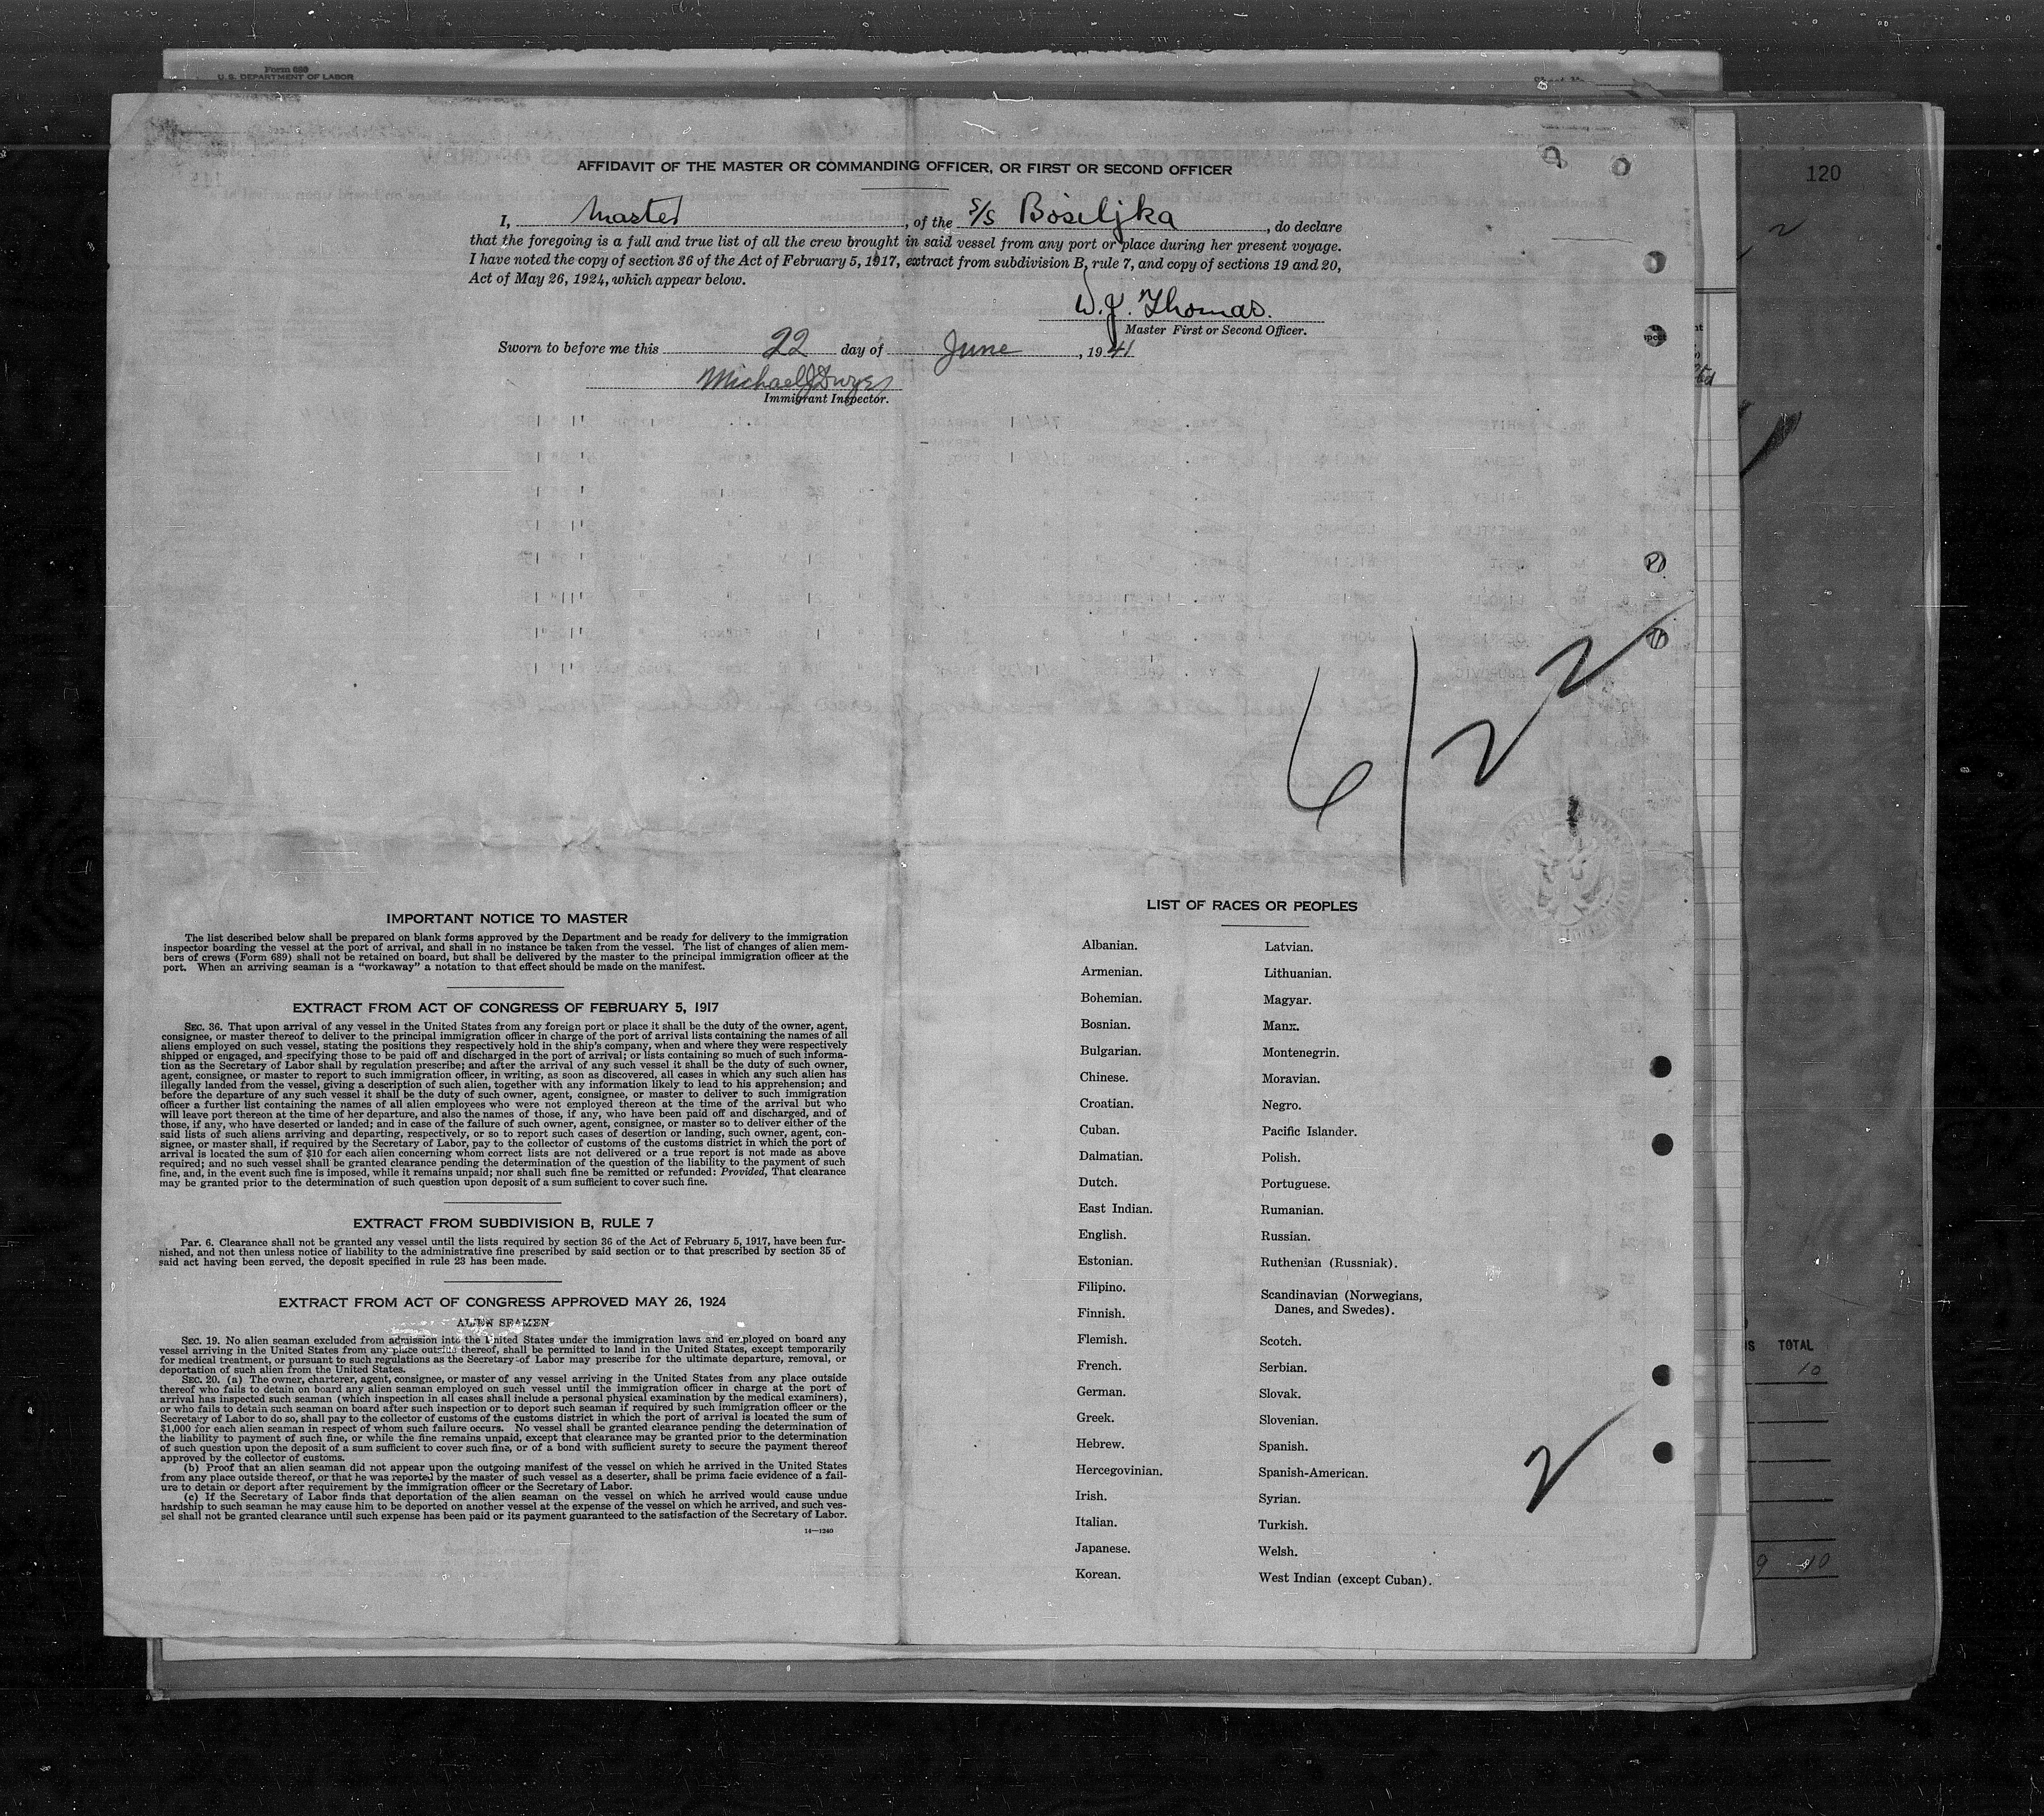 Form 689
U. S. DEPARTMENT OF LABOR
120
AFFIDAVIT OF THE MASTER OR COMMANDING OFFICER, OR FIRST OR SECOND OFFICER
I, Master, of the S/S Bosiljka, do declare
that the foregoing is a full and true list of all the crew brought in said vessel from any port or place during her present voyage.
I have noted the copy of section 36 of the Act of February 5, 1917, extract from subdivision B, rule 7, and copy of sections 19 and 20,
Act of May 26, 1924, which appear below.
W. J. Thomas.
Master First or Second Officer.
Sworn to before me this 22 day of June, 1941
Michael J Dwyer
Immigrant Inspector.
6/22
IMPORTANT NOTICE TO MASTER
The list described below shall be prepared on blank forms approved by the Department and be ready for delivery to the immigration
inspector boarding the vessel at the port of arrival, and shall in no instance be taken from the vessel. The list of changes of alien mem-
bers of crews (Form 689) shall not be retained on board, but shall be delivered by the master to the principal immigration officer at the
port. When an arriving seaman is a "workaway" a notation to that effect should be made on the manifest.
EXTRACT FROM ACT OF CONGRESS OF FEBRUARY 5, 1917
SEC. 36. That upon arrival of any vessel in the United States from any foreign port or place it shall be the duty of the owner, agent,
consignee, or master thereof to deliver to the principal immigration officer in charge of the port of arrival lists containing the names of all
aliens employed on such vessel, stating the positions they respectively hold in the ship's company, when and where they were respectively
shipped or engaged, and specifying those to be paid off and discharged in the port of arrival; or lists containing so much of such informa-
tion as the Secretary of Labor shall by regulation prescribe; and after the arrival of any such vessel it shall be the duty of such owner,
agent, consignee, or master to report to such immigration officer, in writing, as soon as discovered, all cases in which any such alien has
illegally landed from the vessel, giving a description of such alien, together with any information likely to lead to his apprehension; and
before the departure of any such vessel it shall be the duty of such owner, agent, consignee, or master to deliver to such immigration
officer a further list containing the names of all alien employees who were not employed thereon at the time of the arrival but who
will leave port thereon at the time of her departure, and also the names of those, if any, who have been paid off and discharged, and of
those, if any, who have deserted or landed; and in case of the failure of such owner, agent, consignee, or master so to deliver either of the
said lists of such aliens arriving and departing, respectively, or so to report such cases of desertion or landing, such owner, agent, con-
signee, or master shall, if required by the Secretary of Labor, pay to the collector of customs of the customs district in which the port of
arrival is located the sum of $10 for each alien concerning whom correct lists are not delivered or a true report is not made as above
required; and no such vessel shall be granted clearance pending the determination of the question of the liability to the payment of such
fine, and, in the event such fine is imposed, while it remains unpaid; nor shall such fine be remitted or refunded: Provided, That clearance
may be granted prior to the determination of such question upon deposit of a sum sufficient to cover such fine.
EXTRACT FROM SUBDIVISION B, RULE 7
Par. 6. Clearance shall not be granted any vessel until the lists required by section 36 of the Act of February 5, 1917, have been fur-
nished, and not then unless notice of liability to the administrative fine prescribed by said section or to that prescribed by section 35 of
said act having been served, the deposit specified in rule 23 has been made.
EXTRACT FROM ACT OF CONGRESS APPROVED MAY 26, 1924
ALIEN SEAMEN
SEC. 19. No alien seaman excluded from admission into the United States under the immigration laws and employed on board any
vessel arriving in the United States from any place outside thereof, shall be permitted to land in the United States, except temporarily
for medical treatment, or pursuant to such regulations as the Secretary of Labor may prescribe for the ultimate departure, removal, or
deportation of such alien from the United States.
SEC. 20. (a) The owner, charterer, agent, consignee, or master of any vessel arriving in the United States from any place outside
thereof who fails to detain on board any alien seaman employed on such vessel until the immigration officer in charge at the port of
arrival has inspected such seaman (which inspection in all cases shall include a personal physical examination by the medical examiners),
or who fails to detain such seaman on board after such inspection or to deport such seaman if required by such immigration officer or the
Secretary of Labor to do so, shall pay to the collector of customs of the customs district in which the port of arrival is located the sum of
$1,000 for each alien seaman in respect of whom such failure occurs. No vessel shall be granted clearance pending the determination of
the liability to payment of such fine, or while the fine remains unpaid, except that clearance may be granted prior to the determination
of such question upon the deposit of a sum sufficient to cover such fine, or of a bond with sufficient surety to secure the payment thereof
approved by the collector of customs.
(b) Proof that an alien seaman did not appear upon the outgoing manifest of the vessel on which he arrived in the United States
from any place outside thereof, or that he was reported by the master of such vessel as a deserter, shall be prima facie evidence of a fail-
ure to detain or deport after requirement by the immigration officer or the Secretary of Labor.
(c) If the Secretary of Labor finds that deportation of the alien seaman on the vessel on which he arrived would cause undue
hardship to such seaman he may cause him to be deported on another vessel at the expense of the vessel on which he arrived, and such ves-
sel shall not be granted clearance until such expense has been paid or its payment guaranteed to the satisfaction of the Secretary of Labor.
14—1240
LIST OF RACES OR PEOPLES
Albanian.
Armenian.
Bohemian.
Bosnian.
Bulgarian.
Chinese.
Croatian.
Cuban.
Dalmatian.
Dutch.
East Indian.
English.
Estonian.
Filipino.
Finnish.
Flemish.
French.
German.
Greek.
Hebrew.
Hercegovinian.
Irish.
Italian.
Japanese.
Korean.
Latvian.
Lithuanian.
Magyar.
Manx.
Montenegrin.
Moravian.
Negro.
Pacific Islander.
Polish.
Portuguese.
Rumanian.
Russian.
Ruthenian (Russniak).
Scandinavian (Norwegians,
Danes, and Swedes).
Scotch.
Serbian.
Slovak.
Slovenian.
Spanish.
Spanish-American.
Syrian.
Turkish.
Welsh.
West Indian (except Cuban).
2
TOTAL
10
9 10